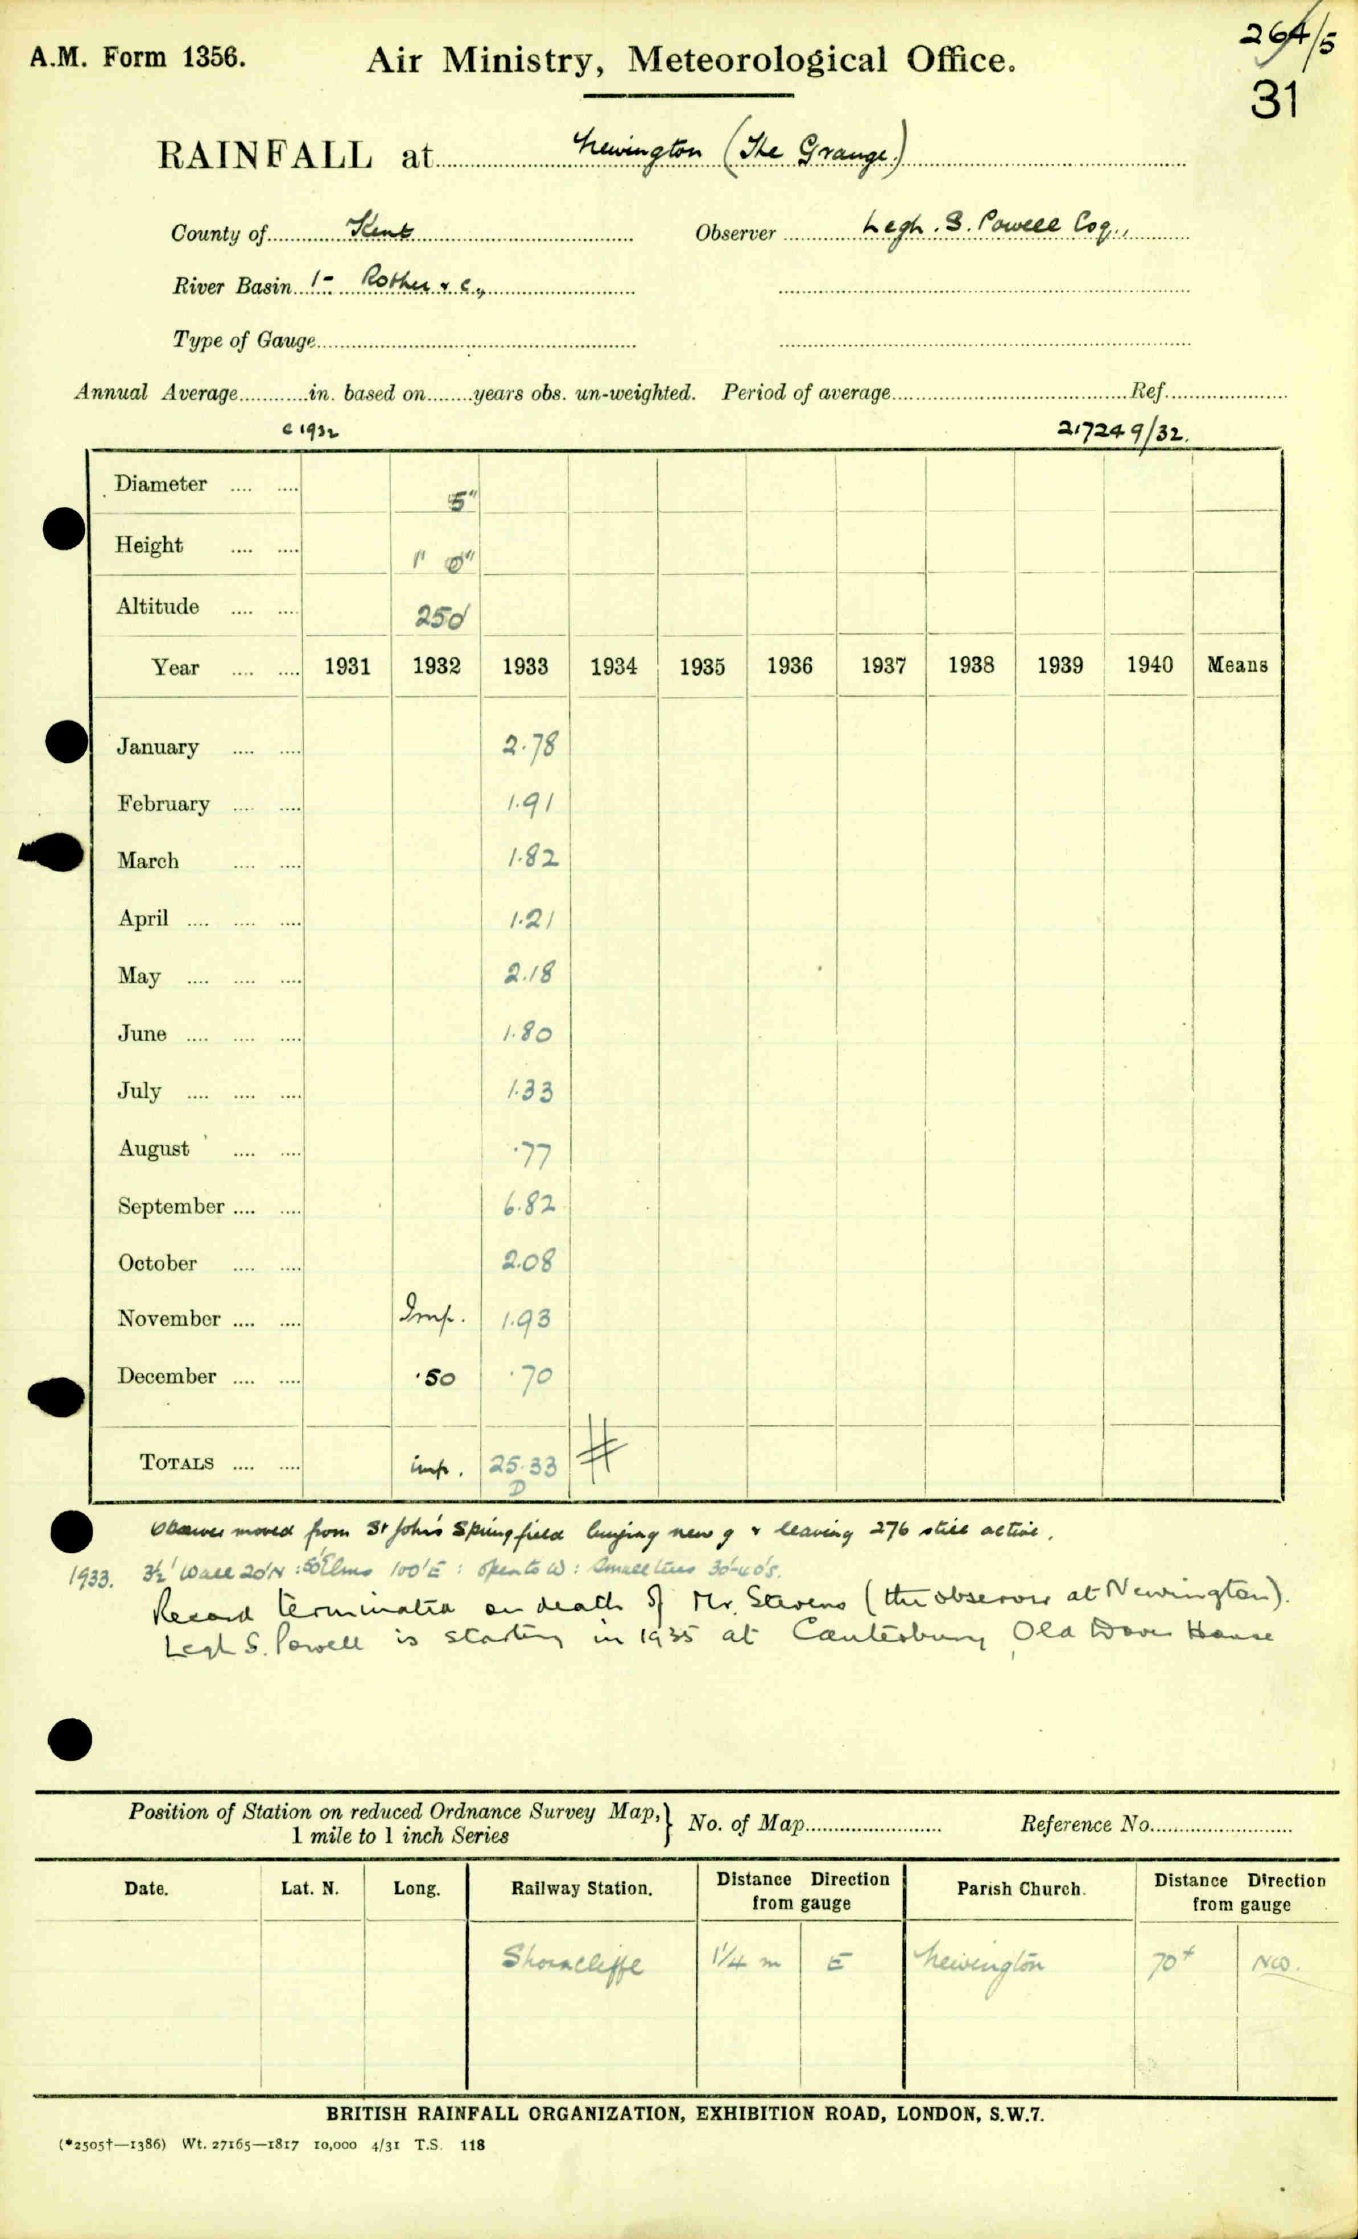 264/5
A.M. Form 1356. Air Ministry, Meteorological Office.
31
RAINFALL at Newington (The Grange.)
County of Kent Observer Legh. S. Powell Esq.,
River Basin 1- Rother & c.,
Type of Gauge
Annual Average in. based on years obs. un-weighted. Period of average Ref.
c 1932 217249/32.
Diameter 5"
Height 1' 0"
Altitude 250
Year 1931 1932 1933 1934 1935 1936 1937 1938 1939 1940 Means
January 2.78
February 1.91
March 1.82
April 1.21
May 2.18
June 1.80
July 1.33
August .77
September 6.82
October 2.08
November Imp. 1.93
December .50 .70
TOTALS imp. 25.33
D
Observer moved from St John's Springfield buying new g & leaving 276 still active.
1933. 3½' Wall 20'N : 50' Elms 100'E : open to W : Small trees 30'-40's.
Record terminated on death of Mr. Stevens (the observer at Newington).
Legh S. Powell is starting in 1935 at Canterbury, Old Dover House
Position of Station on reduced Ordnance Survey Map, } No. of Map Reference No.
1 mile to 1 inch Series
Date. Lat. N. Long. Railway Station. Distance Direction from gauge Parish Church. Distance Direction from gauge
Shorncliffe 1¼ m E Newington 70+ NW.
BRITISH RAINFALL ORGANIZATION, EXHIBITION ROAD, LONDON, S.W.7.
(*2505†—1386) Wt. 27165—1817 10,000 4/31 T.S. 118